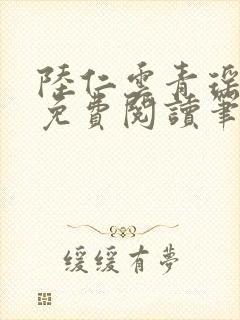 陸仁雲青瑤
免費閱讀筆
緩緩有夢